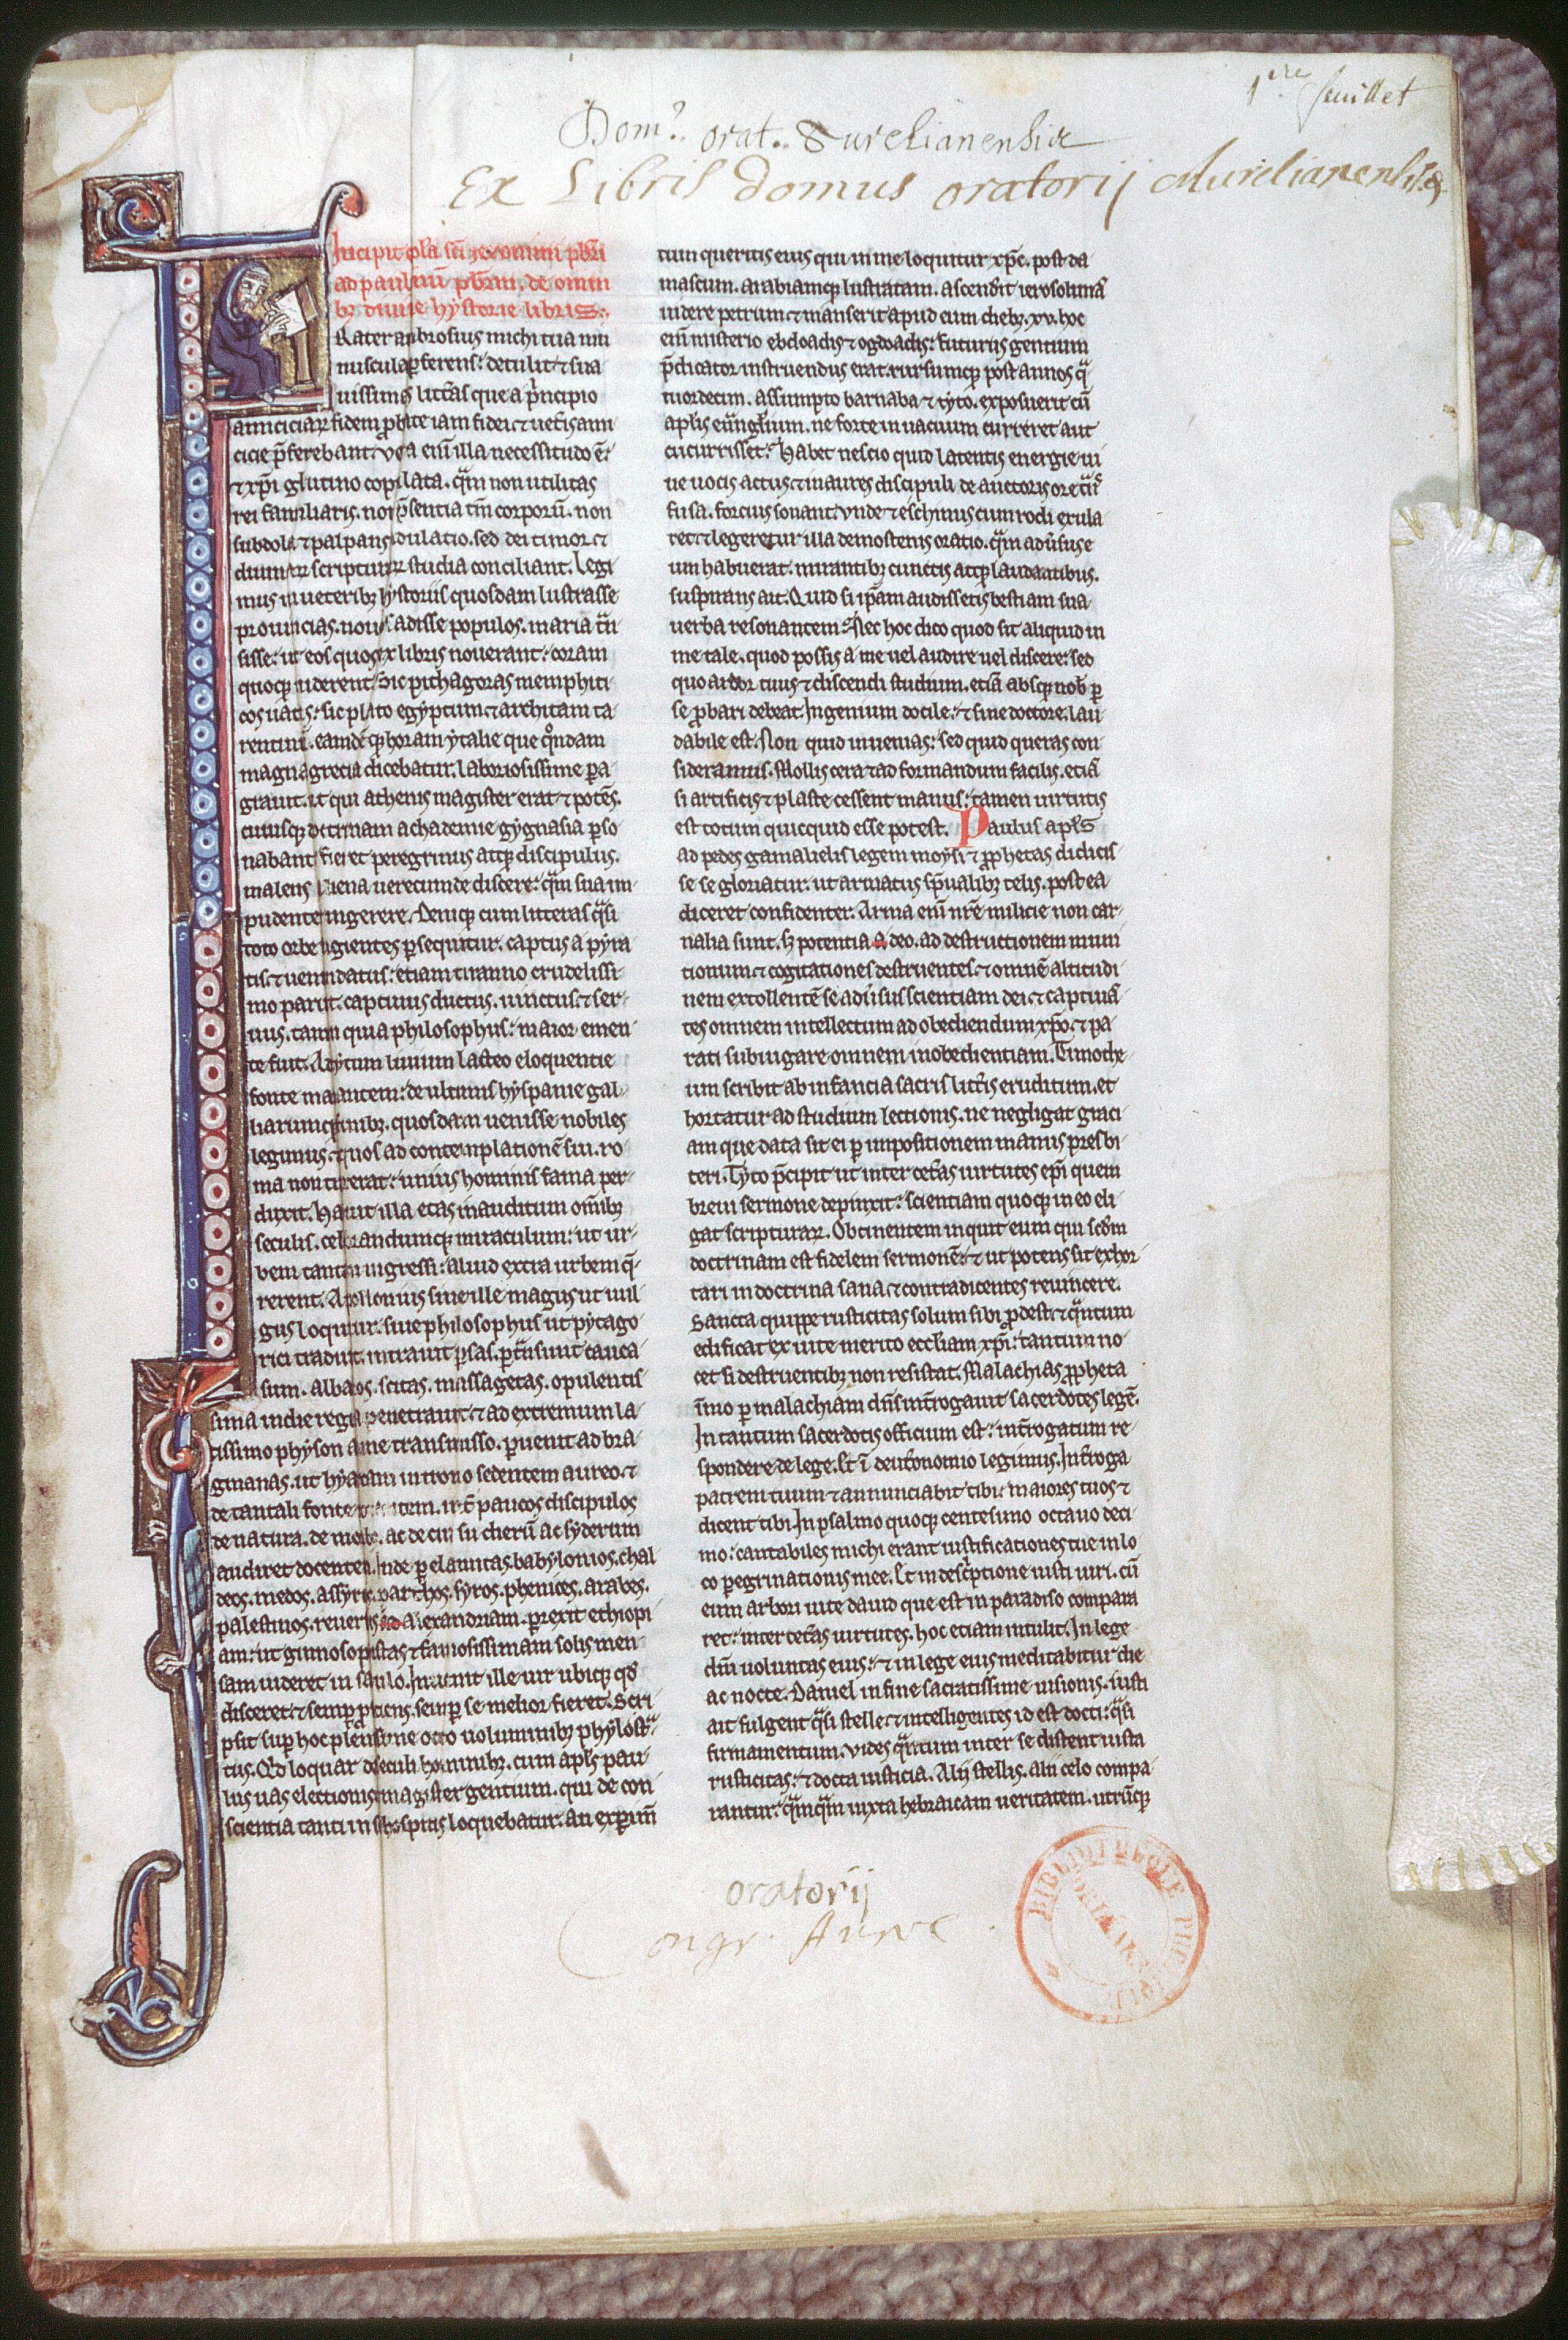 1ere feuillet
Dom.9 orat.. Aurelianensis
Ex Libris domus oratorij Aurelianensis.
Incipit epl̄a sc̄i ieronimi pb̄ri
ad paulinū pb̄rm. de omni
bꝫ diuine hystorie libris:
Frater ambrosius michi tua mu
nuscula ꝑferens: detulit ⁊ sua
uissimas litt̄as que a p̄ncipio
amiciciaꝝ fidem ꝓbate iam fidei ⁊ uet̄is ami
cicie p̄ferebant. Vera eni̅ illa necessitudo ē:
⁊ xp̄i glutino copulata. q̄m non utilitas
rei familiaris. non p̄sentia tm̄ corporū. non
subdola ⁊ palpans adulatio. sed dei timor ⁊
diuinaꝝ scripturaꝝ studia conciliant. Legi
mus in ueteribꝫ hystoriis quosdam lustrasse
prouincias. nouos adisse populos. maria t̄n
sisse: ut eos quos ex libris nouerant: coram
quoqꝫ uiderent. Sic pithagoras memphiti
cos uates: sic plato egyptum ⁊ architam ta
rentinū. eamdēqꝫ horam ytalie que q̊ndam
magna grecia dicebatur. laboriosissime ꝑa
grauit. ut qui athenis magister erat ⁊ potēs.
cuiusqꝫ doctrinam achademie gygnasia ꝑso
nabant fieret peregrinus atqꝫ discipulus.
malens aliena uerecunde discere: q̄m sua im
pudenter ingerere. Deniqꝫ cum litteras q̄si
toto orbe fugientes ꝑsequitur. captus a pyra
tis ⁊ uenundatus: etiam tiranno crudelissi
mo paruit. captiuus ductus. uinctus ⁊ ser
uus. tamen quia philosophus: maior emen
te fuit. Ad tytum liuium lacteo eloquentie
fonte manantem: de ultimis hyspanie gal
liarumqꝫ finibꝫ. quosdam uenisse nobiles
legimus. ⁊ quos ad contemplationē sui. ro
ma non traxerat: unius hominis fama per
duxit. Habuit illa etas inauditum om̄ibꝫ
seculis. celebrandumqꝫ miraculum: ut ur
bem tantam ingressi: aliud extra urbem q̄
rerent. Apollonius siue ille magus ut uul
gus loquitur: siue philosophus ut pytago
rici tradunt. intrauit ꝑsas. ꝑt̄nsiuit cauca
sum. albanos. scitas. massagetas. opulentis
sima indie regna penetrauit: ⁊ ad extremum la
tissimo physon amne transmisso. ꝑuenit ad bra
gmanas. ut hyarcam in trono sedentem aureo ⁊
de tantali fonte potantem. int̄ paucos discipulos
de natura. de moribꝫ. ac de cursu dierū ac syderum
audiret docentem. Inde ꝑ elamitas. babylonios. chal
deos. medos. assyrios. parthos. syros. phenices. arabes.
palestinos. reuersus ad alexandriam. ꝑrexit ethiopi
am: ut gimnosophistas ⁊ famosissimam solis men
sam uideret in sabulo. Inuenit ille uir ubiqꝫ qđ
disceret: ⁊ semꝑ ꝓficiens. semꝑ se melior fieret. Scri
psit suꝑ hoc plenissime octo uoluminibꝫ phylostᵃ
tus. Qđ loquar de seculi hominibꝫ. cum apl̄s pau
lus uas electionis. magister gentium. qui de con
scientia tanti in se hospitis loquebatur. an exꝑim̄
tum queritis eius qui in me loquitur xp̄c. post da
mascum. arabiamqꝫ lustratam. ascendit ierosolimā
uidere petrum: ⁊ manserit apud eum diebꝫ. xv. hoc
eni̅ misterio ebdoadis ⁊ ogdoadis: futurus gentium
p̄dicator instruendus erat. rursumqꝫ post annos q̄
tuordecim. assumpto barnaba ⁊ tyto. exposuerit cū
apl̄is euāgl̄ium. ne forte in uacuum curreret aut
cucurrisset. Habet nescio quid latentis energie ui
ue uocis actus: ⁊ in aures discipuli de auctoris ore t̄ns
fusa. forcius sonant. Vnde ⁊ eschinus cum rodi exula
ret: ⁊ legeretur illa demostenis oratio. q̄m aduersus e
um habuerat: mirantibꝫ cunctis atqꝫ laudantibus.
suspirans ait. Quid si ip̄am audissetis bestiam sua
uerba resonantem? Nec hoc dico quod sit aliquid in
me tale. quod possis a me uel audire uel discere: sed
quo ardor tuus ⁊ discendi studium. etiā absqꝫ nob̄ ꝑ
se ꝓbari debeat. Ingenium docile: ⁊ sine doctore. lau
dabile est. Non quid inuenias: sed quid queras con
sideramus. Mollis cera ⁊ ad formandum facilis. etiā
si artificis ⁊ plaste cessent manus: tamen uirtutis
est totum quicquid esse potest. Paulus apl̄s
ad pedes gamalielis legem moysi ⁊ ꝓphetas didicis
se se gloriatur. ut armatus sp̄ualibꝫ telis. postea
diceret confidenter. Arma eni̅ nr̄e milicie non car
nalia sunt. sꝫ potentia a deo. ad destructionem muni
tionum: ⁊ cogitationes destruentes: ⁊ omnē altitudi
nem extollentē se aduersus scientiam dei: ⁊ captiuā
tes omnem intellectum ad obediendum xp̄o: ⁊ pa
rati subiugare omnem inobedientiam. Timothe
um scribit ab infancia sacris litt̄is eruditum. et
hortatur ad studium lectionis. ne negligat graci
am que data sit ei ꝑ impositionem manus presbi
teri. Tyto p̄cipit ut inter cet̄as uirtutes ep̄i quem
breui sermone depinxit: scientiam quoqꝫ in eo eli
gat scripturaꝝ. Obtinentem inquit eum qui scd̄m
doctrinam est fidelem sermonē: ⁊ ut potens sit exhor
tari in doctrina sana ⁊ contradicentes reuincere.
Sancta quippe rusticitas solum sibi ꝓdest: ⁊ q̄ntum
edificat ex uite merito eccl̄iam xp̄i: tantum no
cet si destruentibꝫ non resistat. Malachias ꝓpheta
īmo ꝑ malachiam dn̄s int̄rogauit sacerdotes legē.
In tantum sacerdotis officium est: int̄rogatum re
spondere de lege. Et ī deut̄onomio legimus. Int̄roga
patrem tuum ⁊ annunciabit tibi: maiores tuos ⁊
dicent tibi. In psalmo quoqꝫ centesimo octauo deci
mo: cantabiles michi erant iustificationes tue in lo
co ꝑegrinationis mee. Et in desc̄ptione iusti uiri. cū
eum arbori uite dauid que est in paradiso compara
ret: inter cet̄as uirtutes. hoc etiam intulit. In lege
dn̄i uoluntas eius: ⁊ in lege eius meditabitur die
ac nocte. Daniel in fine sacratissime uisionis. iusti
ait fulgent q̄si stelle: ⁊ intelligentes id est docti: q̄si
firmamentum. Vides q̄ntum inter se distent iusta
rusticitas: ⁊ docta iusticia. Alij stellis. alii celo compa
rantur: q̄mq̄m iuxta hebraicam ueritatem. utrūqꝫ
oratorij
Congr. Aure
BIBLIOTHEQUE PUBLIQUE